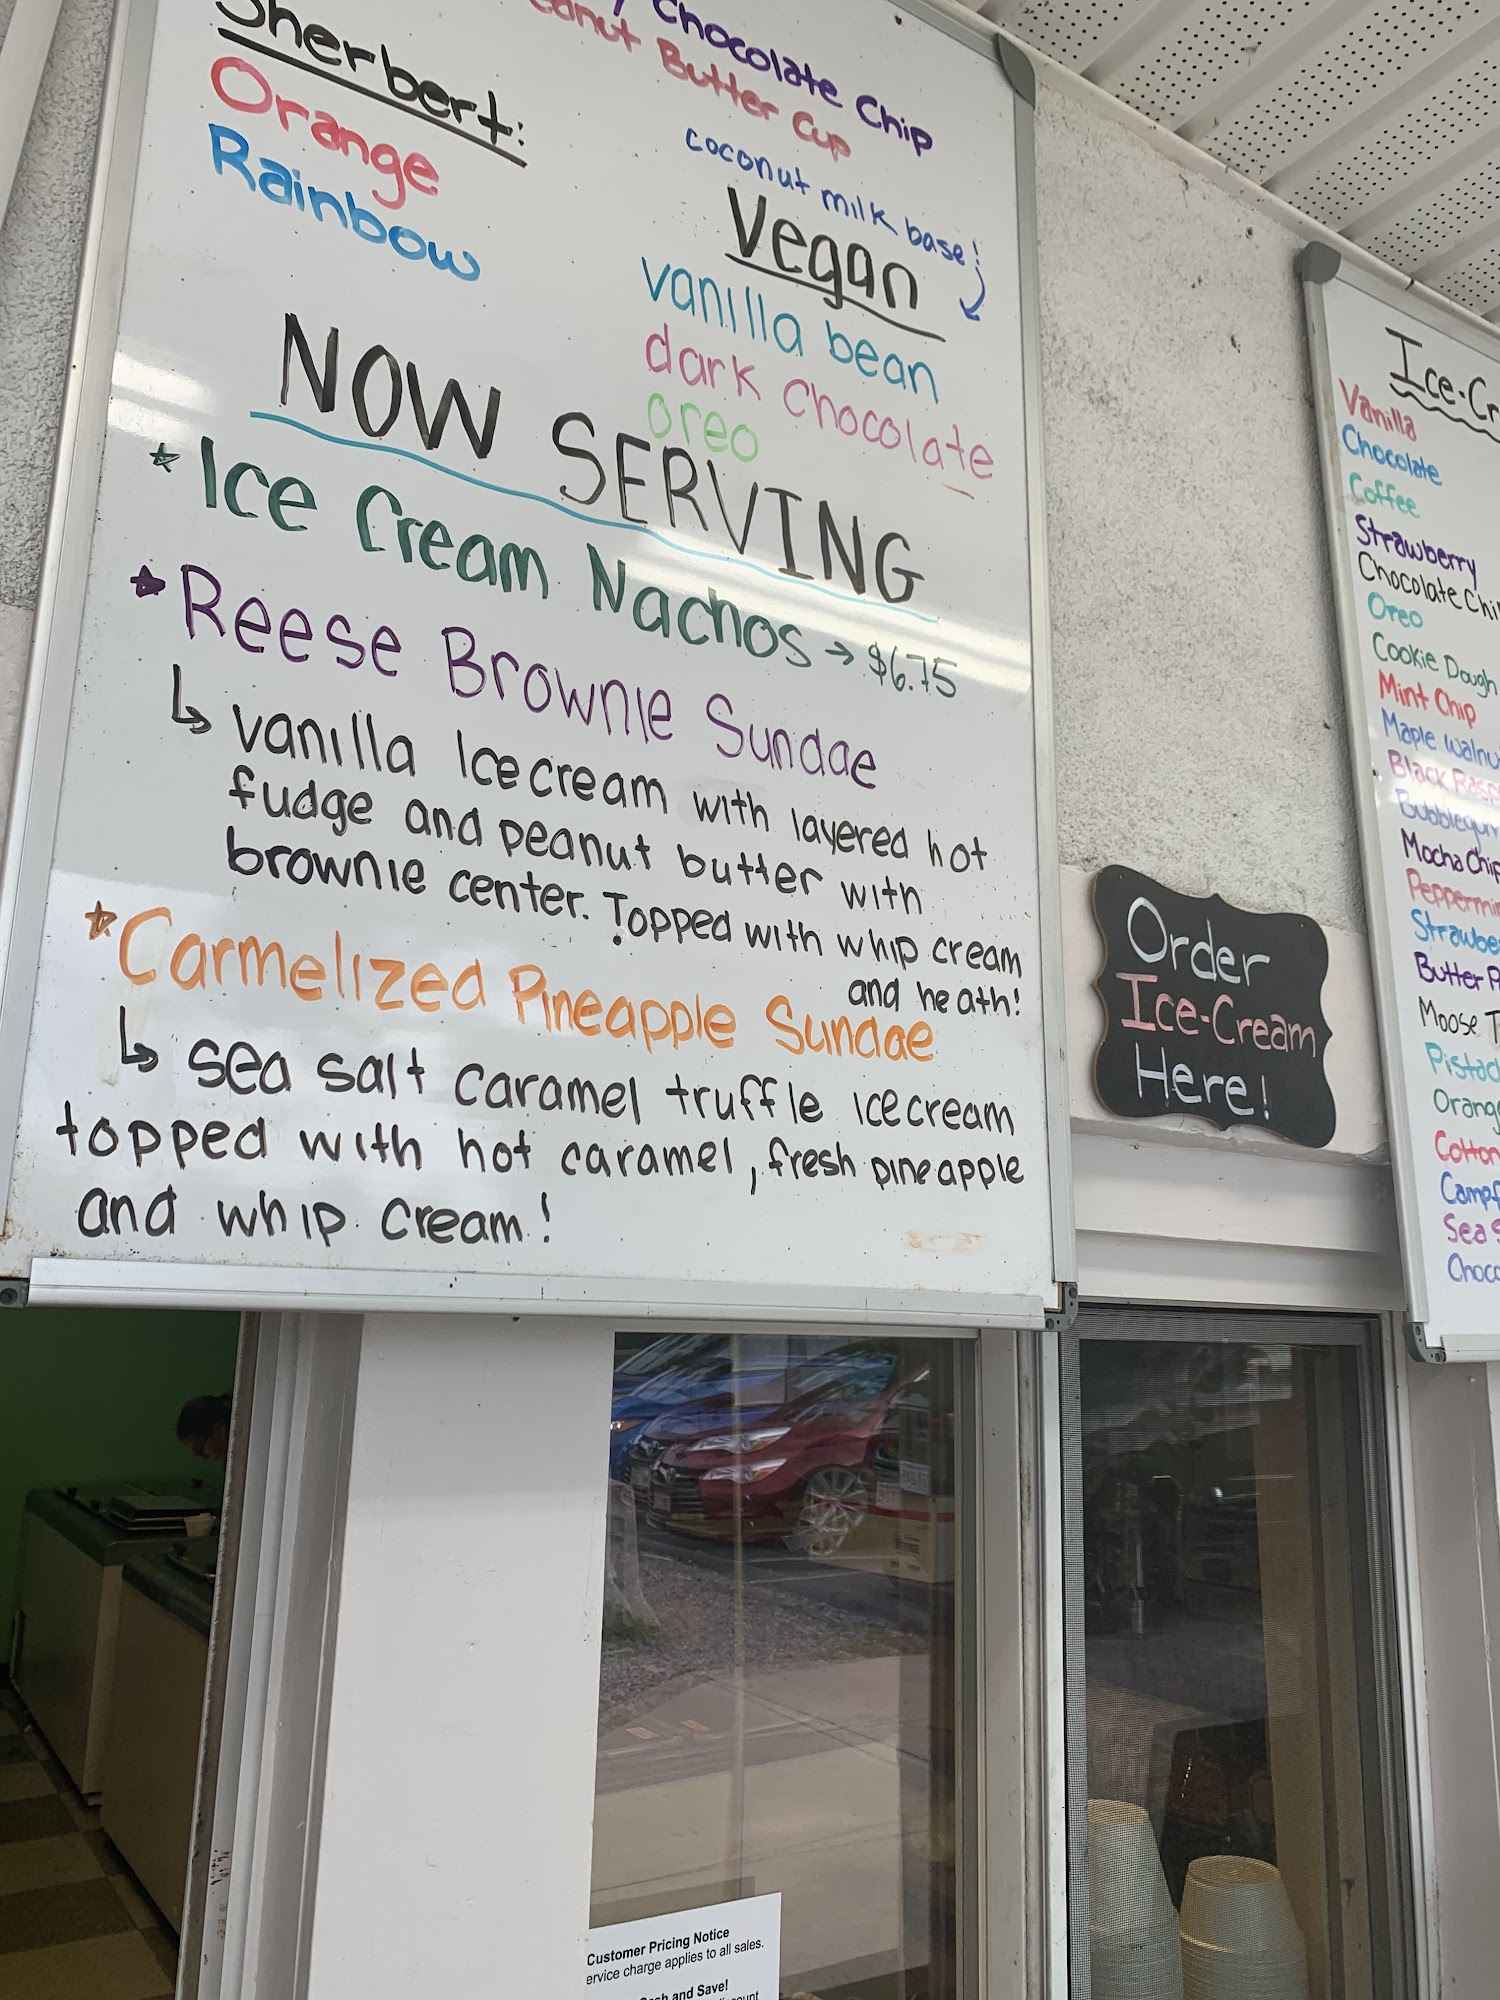 Sherbert:
Orange
Rainbow
Chocolate Chip
Butter Cup
coconut milk base!
Vegan
vanilla bean
dark chocolate
oreo
NOW SERVING
Ice Cream Nachos → $6.75
Reese Brownie Sundae
vanilla Icecream with layered hot
fudge and peanut butter with
brownie center. Topped with whip cream
and heath!
Carmelized Pineapple Sundae
sea salt caramel truffle icecream
topped with hot caramel, fresh pineapple
and whip cream!
Order
Ice-Cream
Here!
Ice-Cr
Vanilla
Chocolate
Coffee
Strawberry
Chocolate Chi
Oreo
Cookie Dough
Mint Chip
Maple Walnu
Black Rasp
Bubblegum
Mocha Chip
Peppermin
Strawbe
Butter P
Moose T
Pistac
Orang
Cotton
Campf
Sea S
Choco
Customer Pricing Notice
ervice charge applies to all sales.
sh and Save!
ount